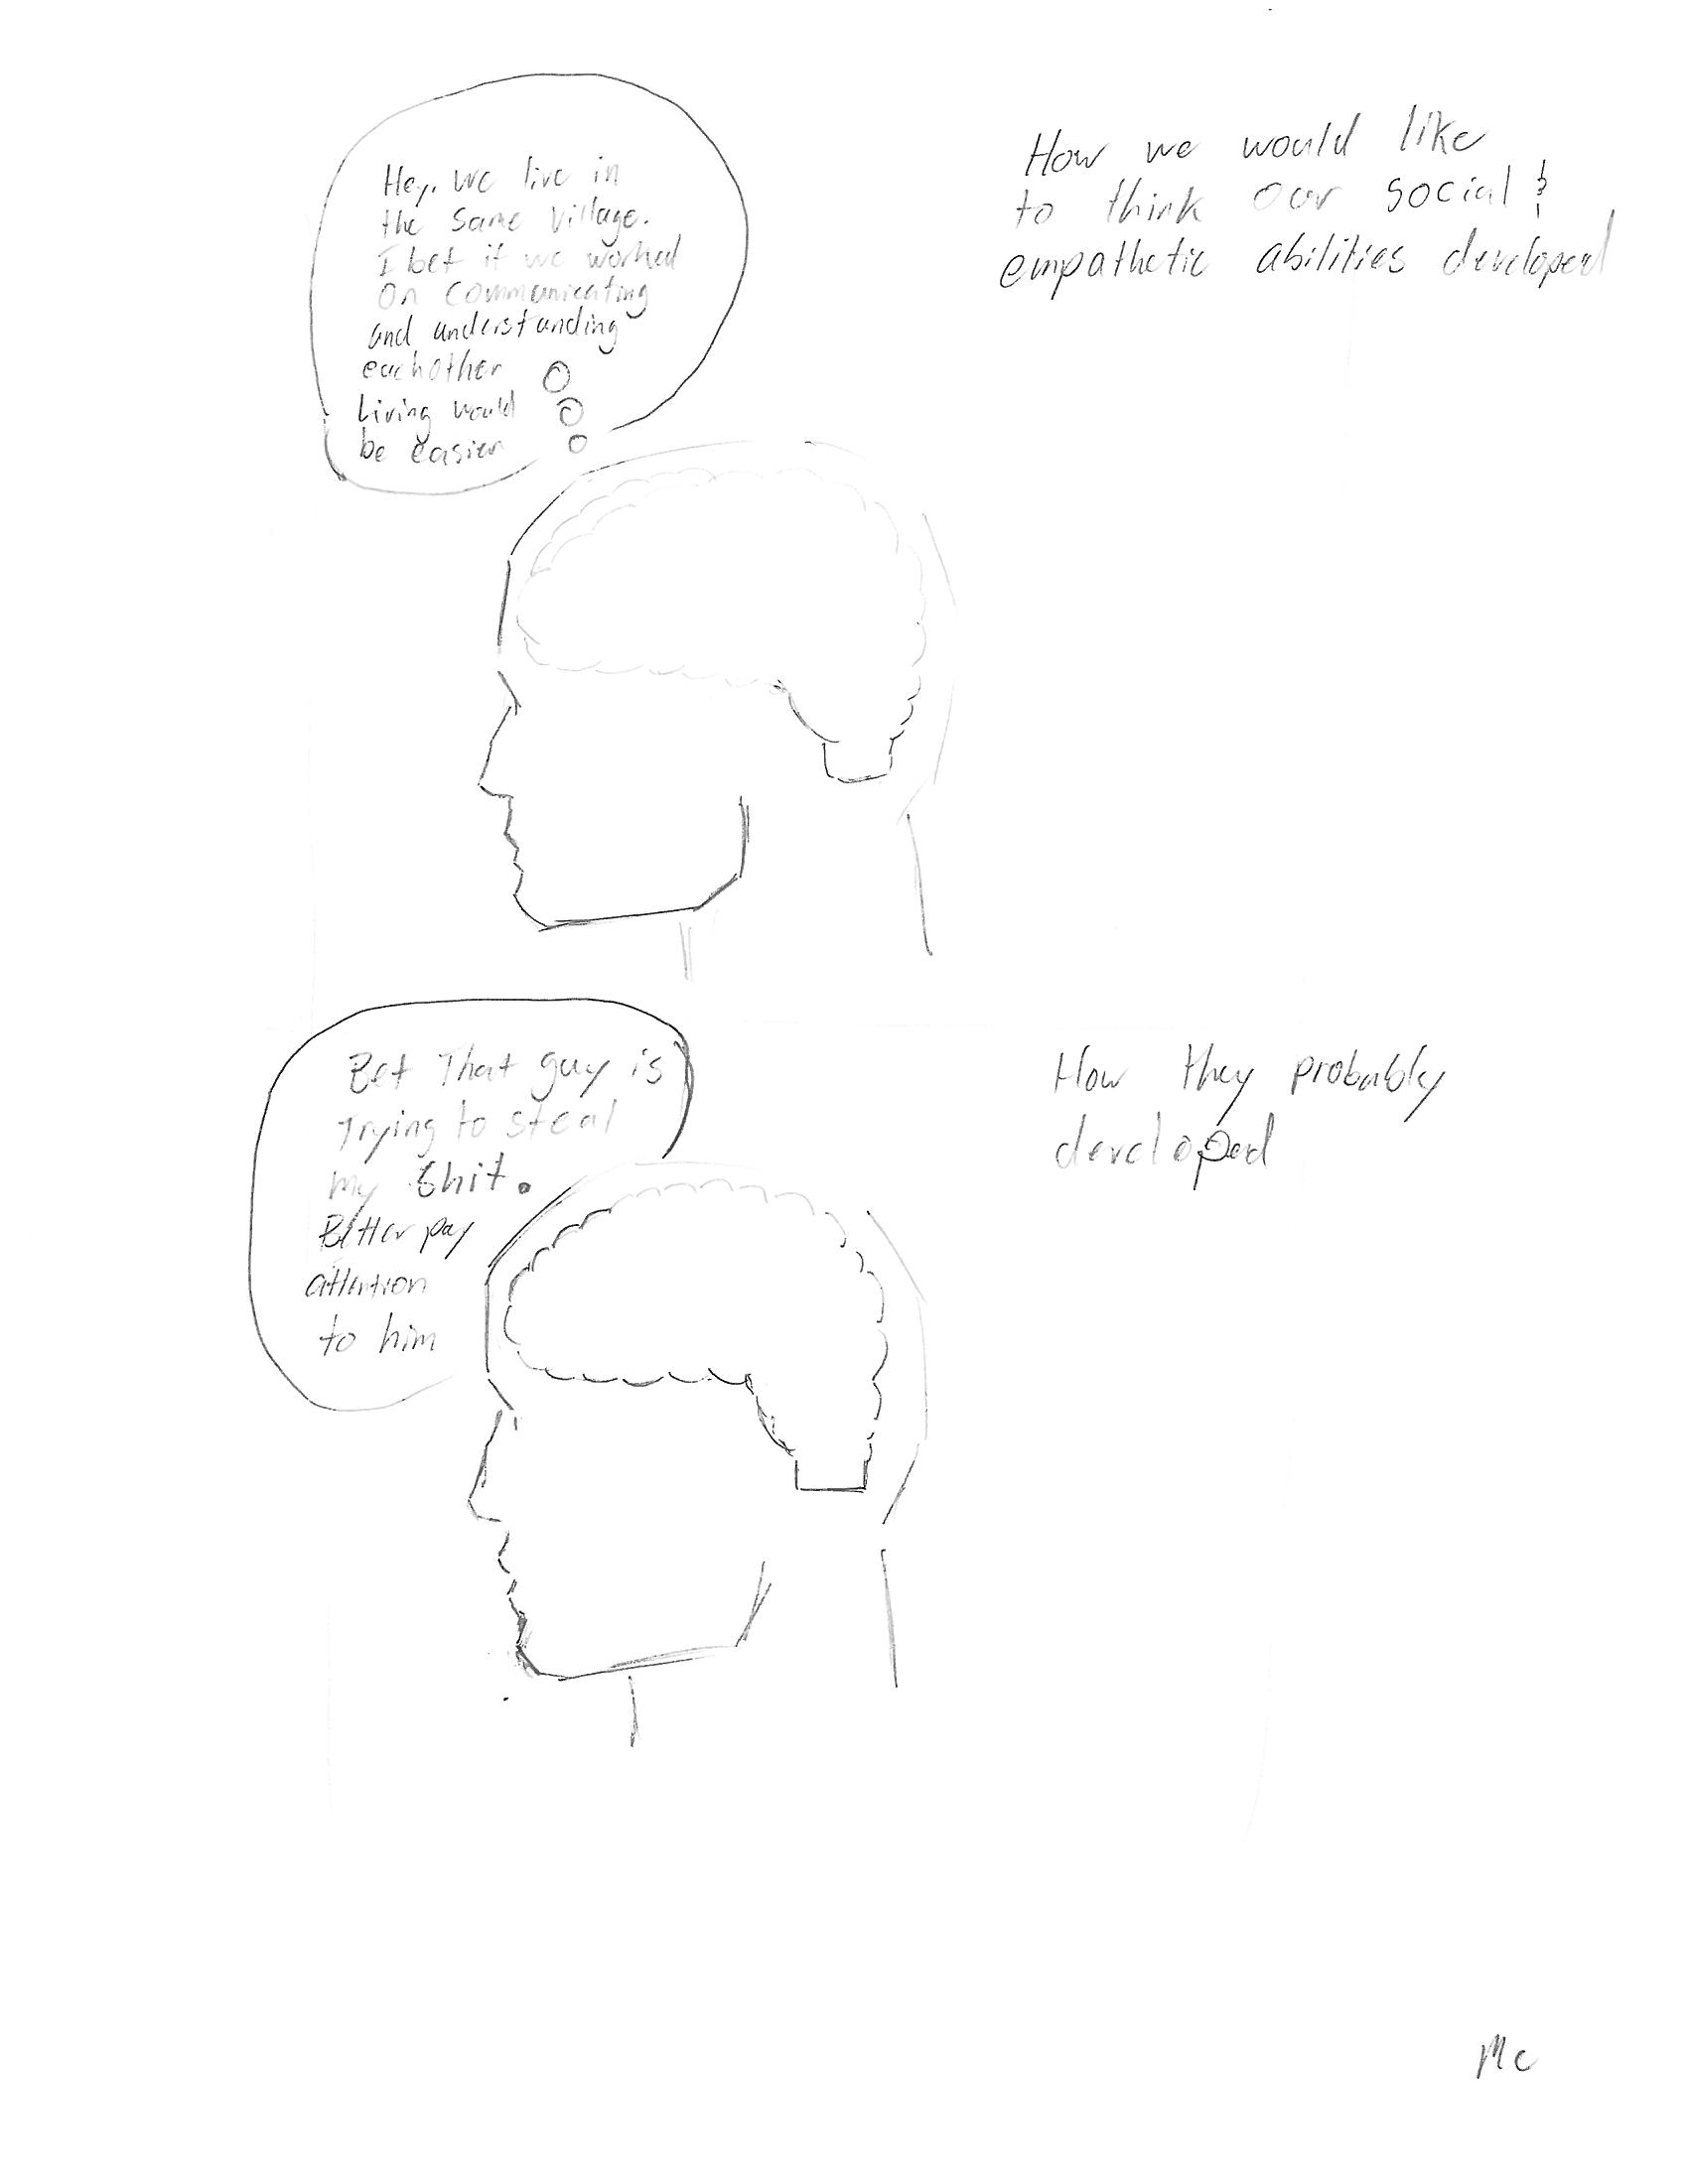 Hey, we live in
the same village.
I bet if we worked
on communicating
and understanding
eachother
Living would
be easier
How we would like
to think our social &
empathetic abilities developed
Bet That guy is
Trying to steal
my shit.
Better pay
attention
to him
How they probably
developed
Mc